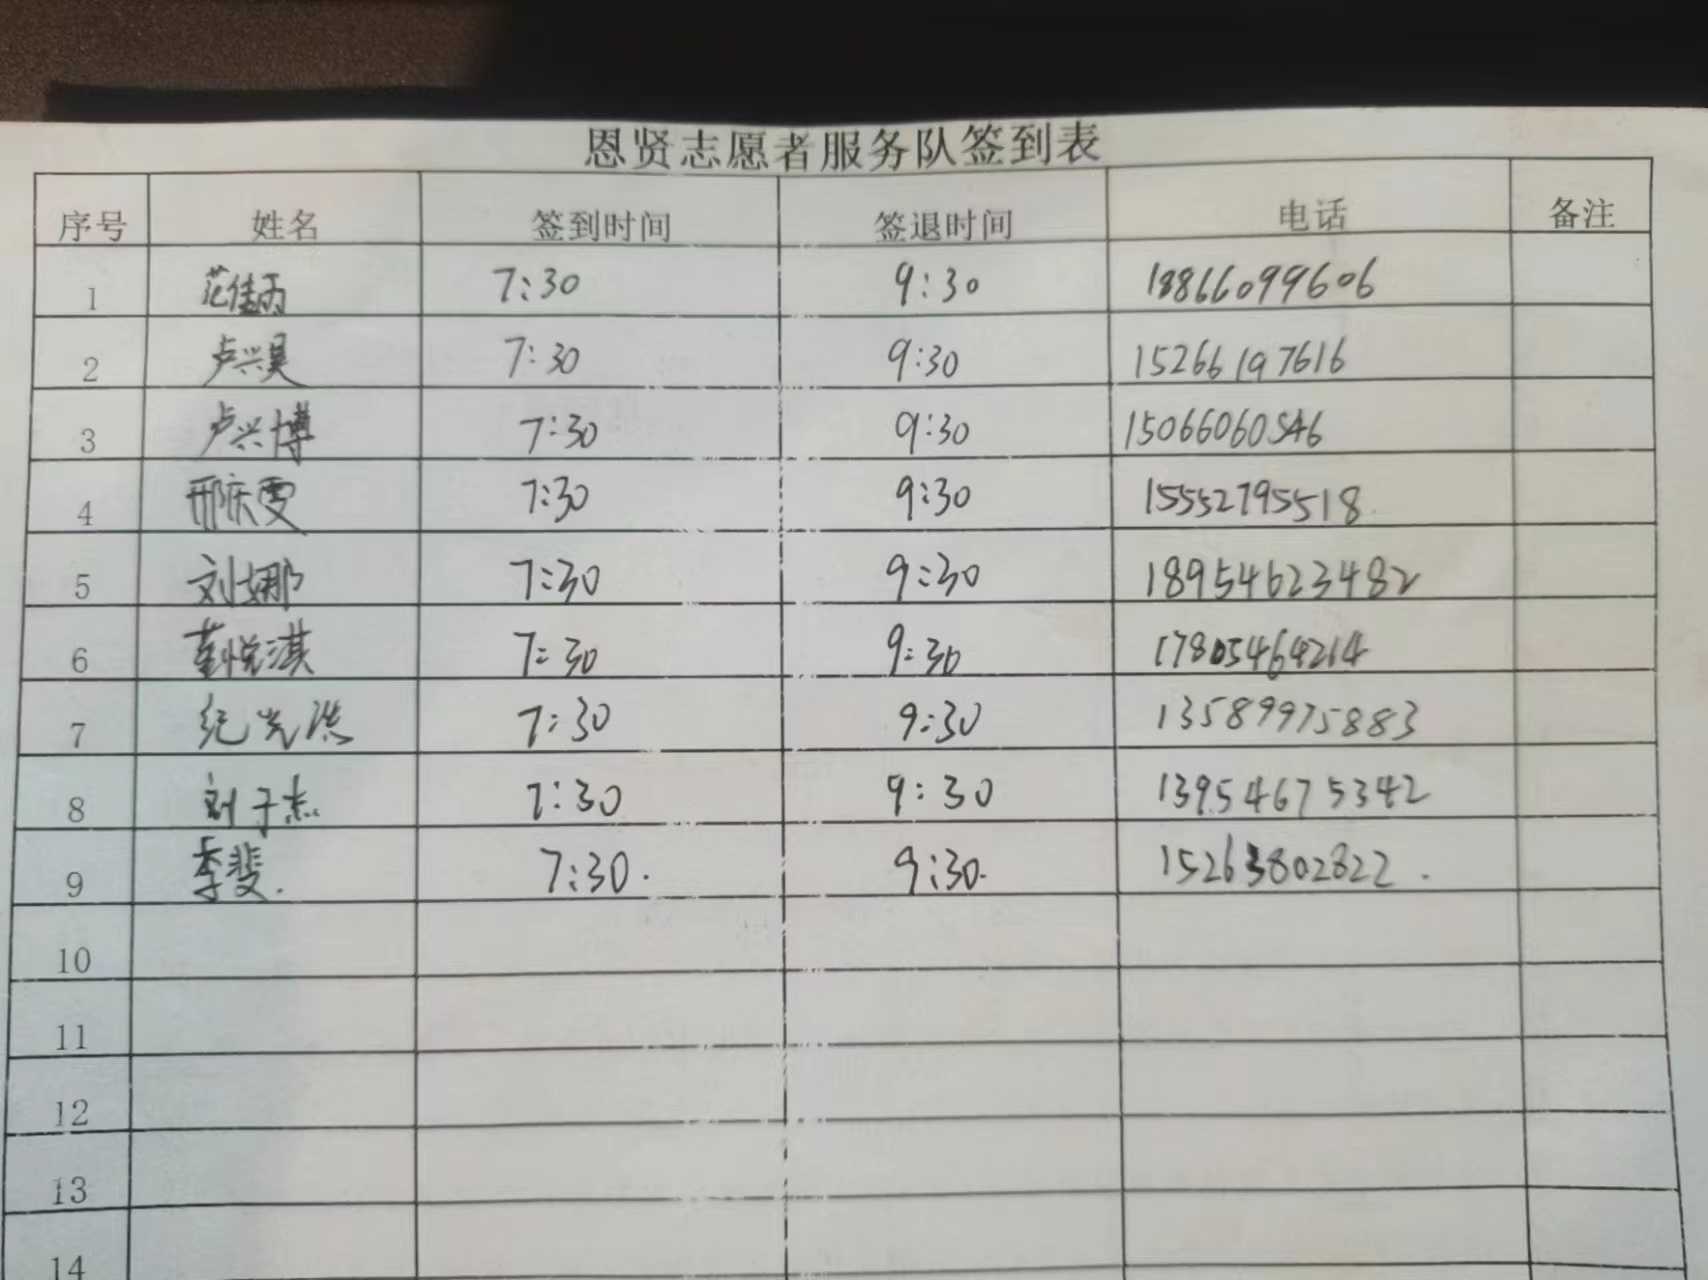 恩贤志愿者服务队签到表
序号 姓名 签到时间 签退时间 电话 备注
1 范佳丙 7:30 9:30 18866099606
2 卢兴昊 7:30 9:30 15266197616
3 卢兴博 7:30 9:30 15066060546
4 邢庆雯 7:30 9:30 15552795518
5 刘娜 7:30 9:30 18954623482
6 董悦淇 7:30 9:30 17805464214
7 纪光洪 7:30 9:30 13589975883
8 刘于杰 7:30 9:30 13954675342
9 李斐. 7:30. 9:30. 15263802822.
10
11
12
13
14